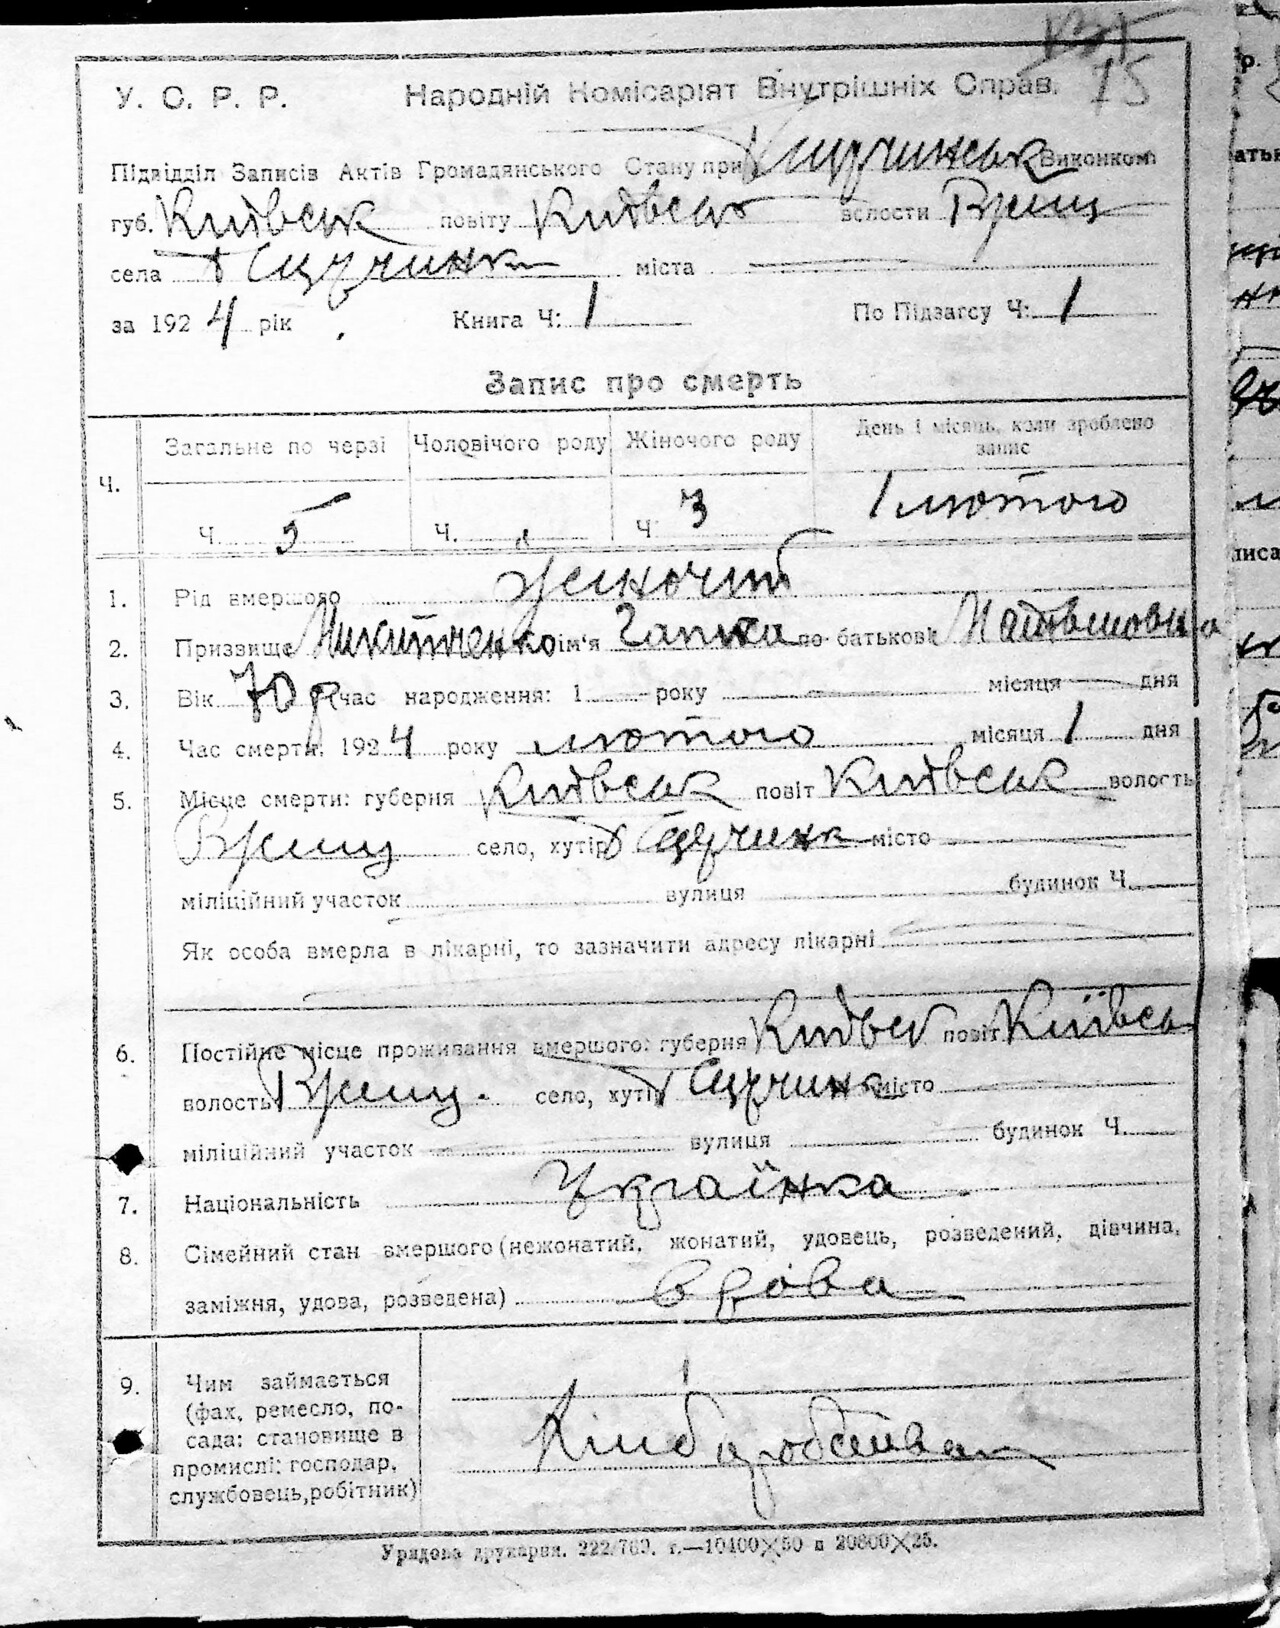 75
У. С. Р. Р. Народній Комісаріят Внутрішніх Справ.
Підвідділ Записів Актів Громадянського Стану при Виконком
губ. Київськ повіту Київськ волости
села міста
за 1924 рік Книга Ч: 1 По Підзагсу Ч: 1
Запис про смерть
Ч. Загальне по черзі Чоловічого роду Жіночого роду День і місяць, коли зроблено
запис
Ч. 5 Ч. Ч. 3 1 лютого
1. Рід вмершого жіночий
2. Призвище Микитченко ім'я Гапка по батькові Матвеиовна
3. Вік 70 р час народження: 1 року місяця дня
4. Час смерти: 1924 року лютого місяця 1 дня
5. Місце смерти: губерня Київськ повіт Київськ волость
село, хутір місто
міліційний участок вулиця будинок Ч.
Як особа вмерла в лікарні, то зазначити адресу лікарні
6. Постійне місце проживання вмершого: губерня Київсь повіт Київськ
волость село, хутір місто
міліційний участок вулиця будинок Ч.
7. Національність Українка
8. Сімейний стан вмершого (нежонатий, жонатий, удовець, розведений, дівчина,
заміжня, удова, розведена) вдова
9. Чим займається
(фах, ремесло, по-
сада: становище в
промислі: господар,
службовець, робітник)
Урядова друкарня. 222/789. г.—10400×50 и 20800×25.